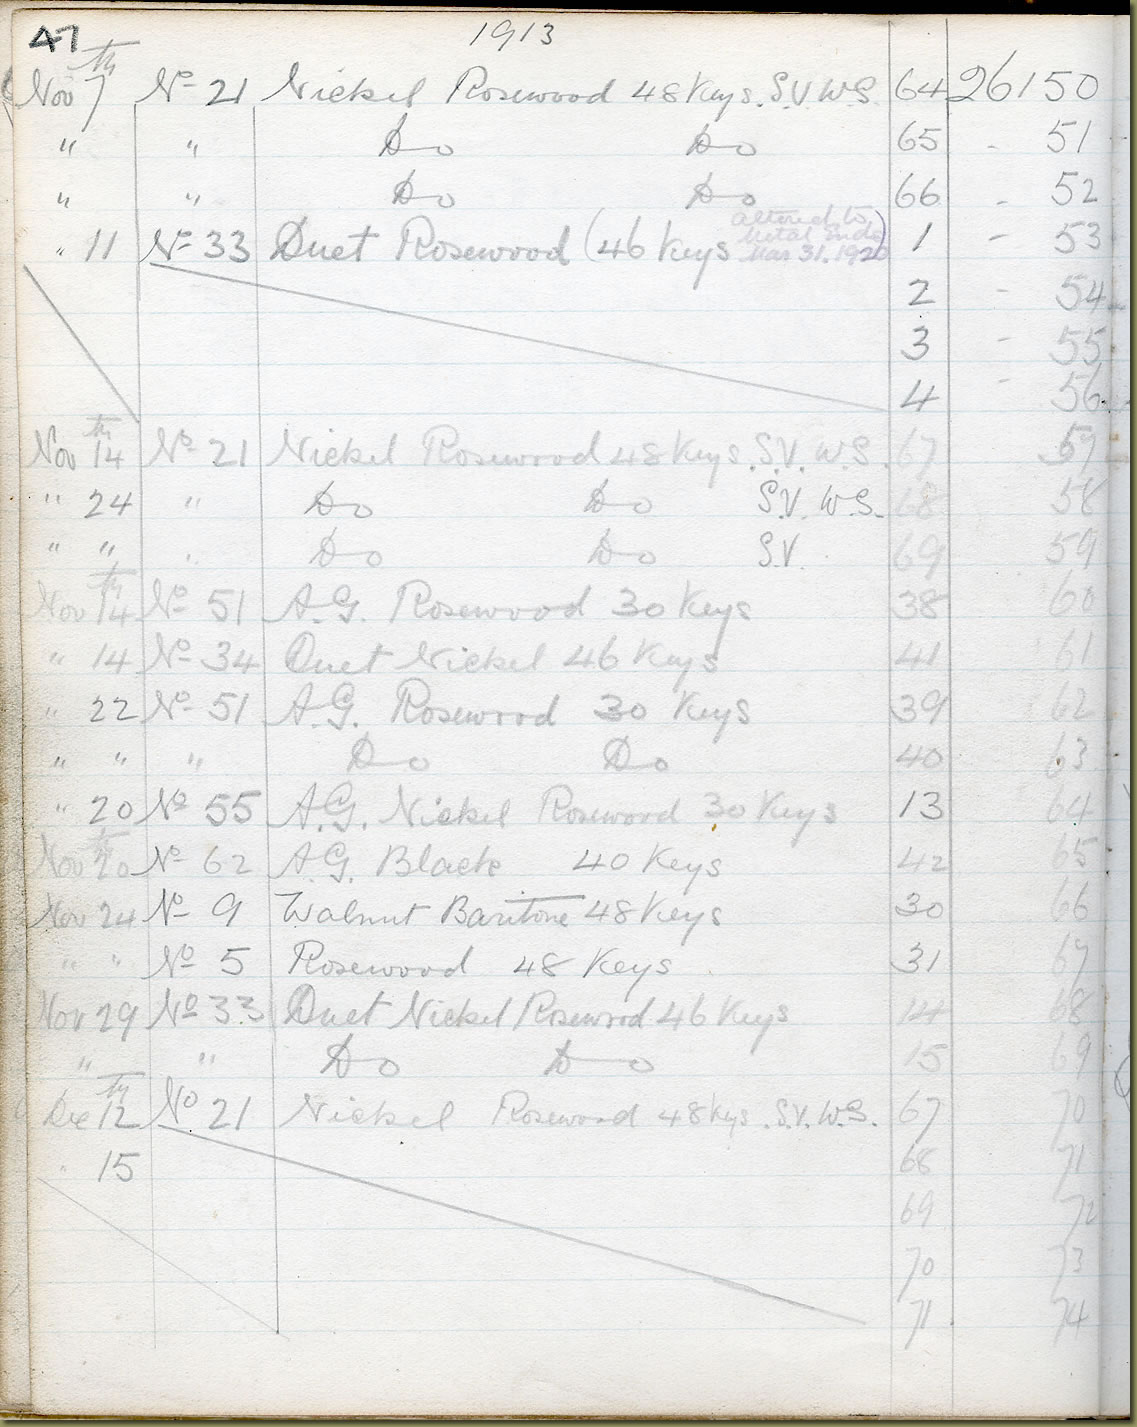 47 1913
Nov 7th No 21 Nickel Rosewood 48 Keys. S.V. W.S. 64 26150
" " Do Do 65 - 51
" " Do Do 66 - 52
" 11 No 33 Duet Rosewood (46 Keys altered to Metal Ends Mar 31. 1920) 1 - 53
2 - 54
3 - 55
4 - 56
Nov 14th No 21 Nickel Rosewood 48 Keys. S.V. W.S. 67 57
" 24 " Do Do S.V. W.S. 68 58
" " " Do Do S.V. 69 59
Nov 14th No 51 A.G. Rosewood 30 Keys 38 60
" 14 No 34 Duet Nickel 46 Keys 41 61
" 22 No 51 A.G. Rosewood 30 Keys 39 62
" " " Do Do 40 63
" 20 No 55 A.G. Nickel Rosewood 30 Keys 13 64
Nov 20th No 62 A.G. Black 40 Keys 42 65
Nov 24 No 9 Walnut Baritone 48 Keys 30 66
" " No 5 Rosewood 48 Keys 31 67
Nov 29 No 33 Duet Nickel Rosewood 46 Keys 14 68
" " Do Do 15 69
Dec 12th No 21 Nickel Rosewood 48 Keys. S.V. W.S. 67 70
" 15 68 71
69 72
70 73
71 74